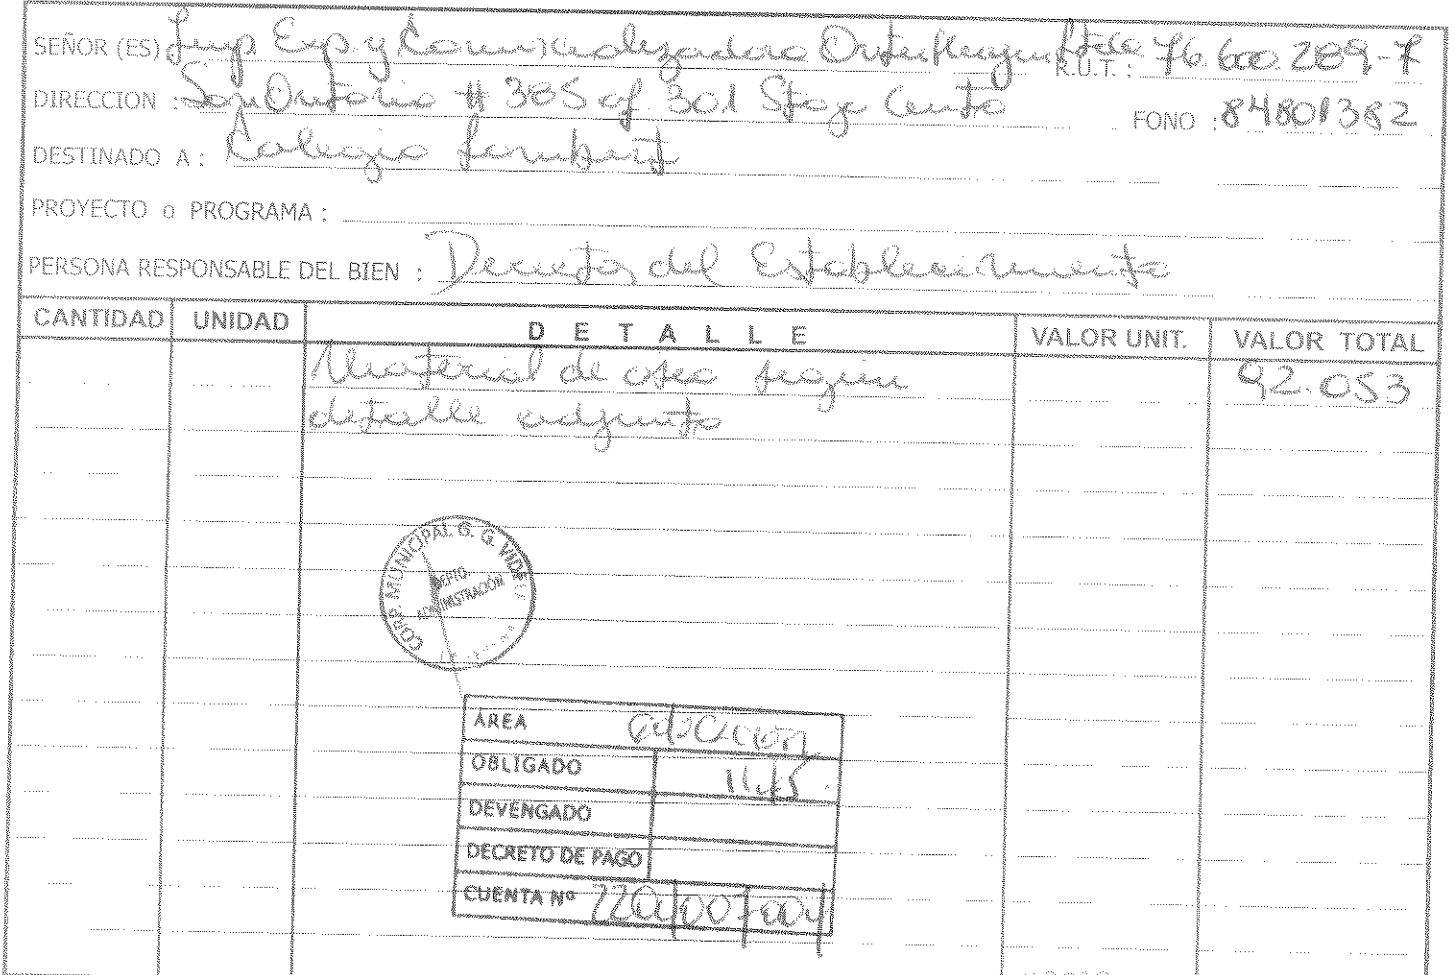 SEÑOR (ES) Imp. Exp. y Comercializadora Ltda R.U.T. : 76.600.289-7
DIRECCION : San Antonio # 385 of. 301 Stgo Centro FONO : 84801382
DESTINADO A : Colegio Lambert
PROYECTO o PROGRAMA :
PERSONA RESPONSABLE DEL BIEN : Director del Establecimiento
CANTIDAD UNIDAD DETALLE VALOR UNIT. VALOR TOTAL
Material de aseo según 92.053
detalle adjunto
CORP. MUNICIPAL G. G. VIDELA
DEPTO.
ADMINISTRACIÓN
AREA Educación
OBLIGADO
DEVENGADO
DECRETO DE PAGO
CUENTA Nº